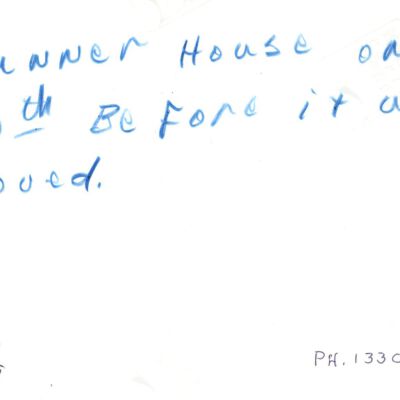 unner House on
th Before it w
oved.
PH. 1330